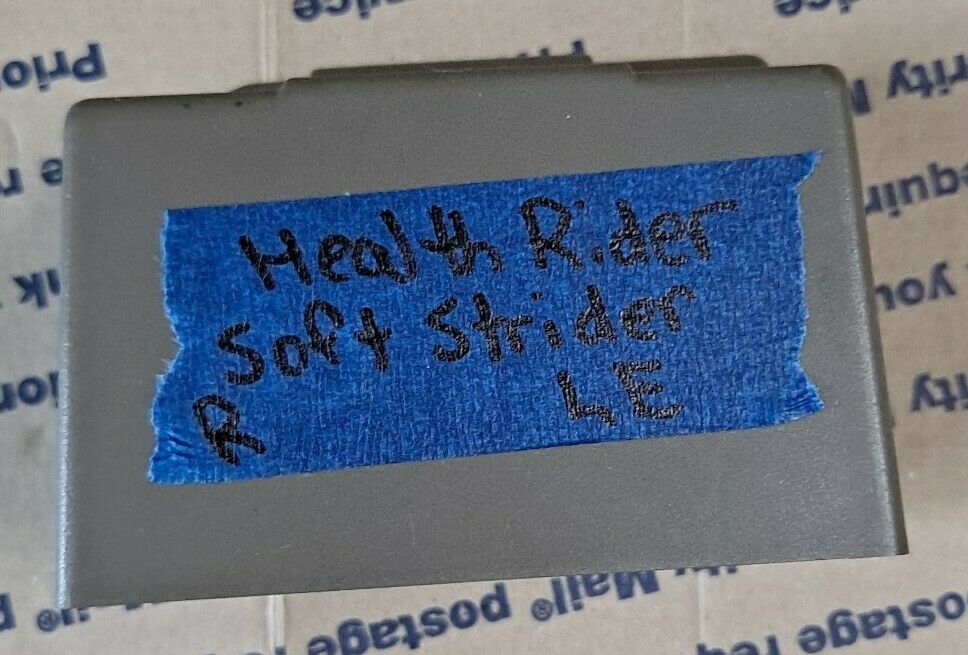 Health Rider
Soft Strider
R LE
Priority Mail® postage required